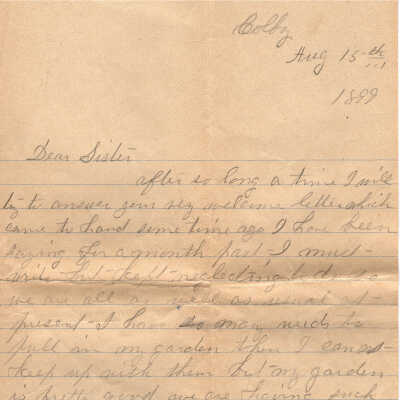 Colby
Aug 15th
1899
Dear Sister
after so long a time I will
try to answer your very welcome letter which
came to hand some time ago I have been
saying for a month past I must
write but kept neglecting to do so
we are all as well as usual at
present I have so many weeds to
pull in my garden then I can not
keep up with them but my garden
is pretty good we are having such